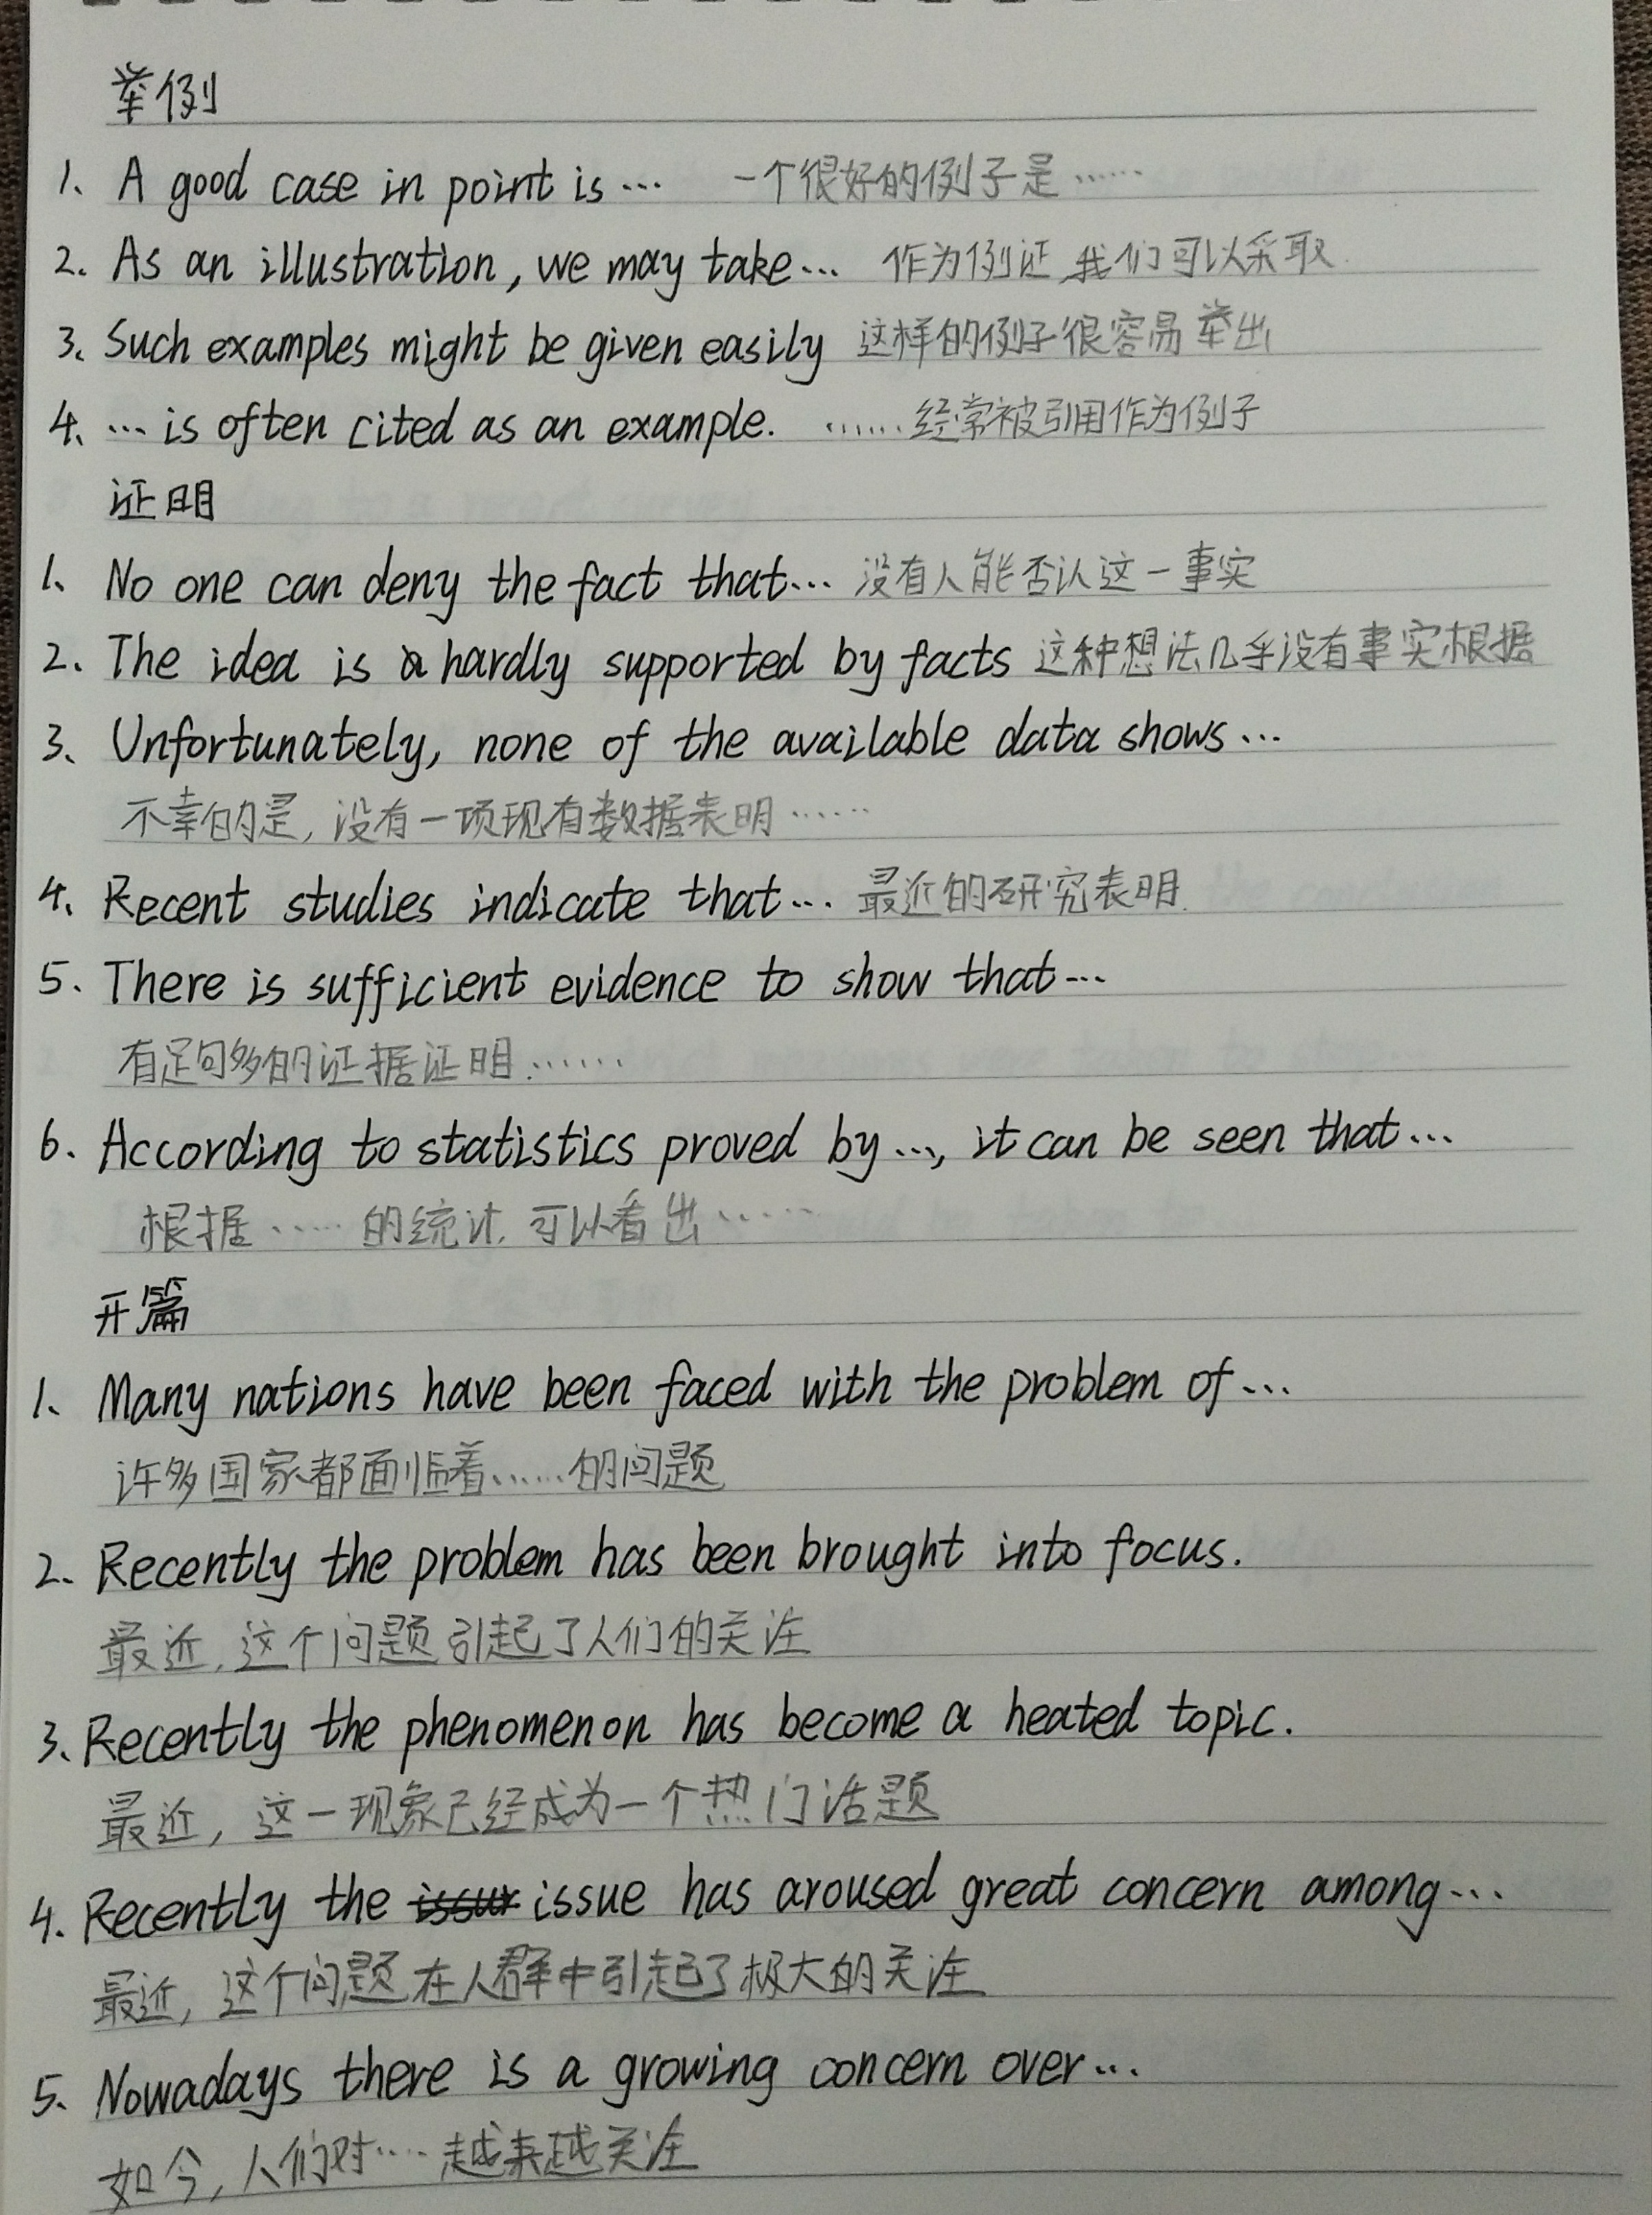 举例
1、A good case in point is… 一个很好的例子是……
2. As an illustration, we may take… 作为例证,我们可以采取
3、Such examples might be given easily 这样的例子很容易举出
4、…is often cited as an example. ……经常被引用作为例子
证明
1、No one can deny the fact that… 没有人能否认这一事实
2. The idea is hardly supported by facts 这种想法几乎没有事实根据
3、Unfortunately, none of the available data shows…
不幸的是,没有一项现有数据表明……
4、Recent studies indicate that… 最近的研究表明.
5、There is sufficient evidence to show that…
有足够多的证据证明……
6. According to statistics proved by…, it can be seen that…
根据……的统计,可以看出……
开篇
1、Many nations have been faced with the problem of…
许多国家都面临着……的问题
2. Recently the problem has been brought into focus.
最近,这个问题引起了人们的关注
3、Recently the phenomenon has become a heated topic.
最近,这一现象已经成为一个热门话题
4. Recently the issue has aroused great concern among…
最近,这个问题在人群中引起了极大的关注
5、Nowadays there is a growing concern over…
如今,人们对……越来越关注